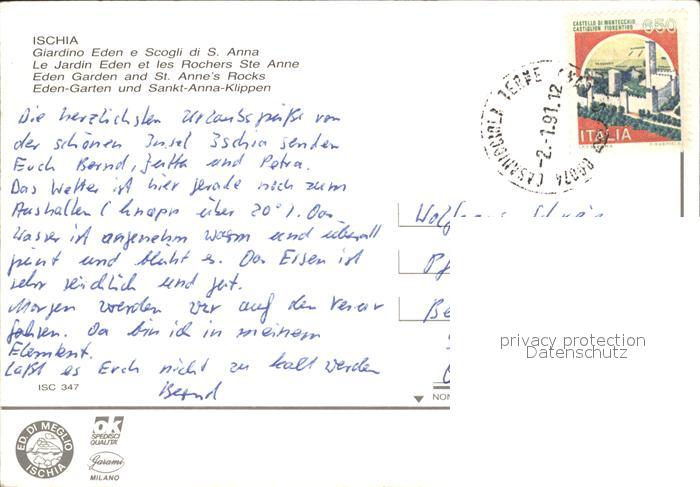 ISCHIA
Giardino Eden e Scogli di S. Anna
Le Jardin Eden et les Rochers Ste Anne
Eden Garden and St. Anne's Rocks
Eden-Garten und Sankt-Anna-Klippen
CASTELLO DI MONTECCHIO
CASTIGLION FIORENTINO
650
ITALIA
80074 CASAMICCIOLA TERME (NA)
-2.-1.91.12
Die herzlichsten Urlaubsgrüße von
der schönen Insel Ischia senden
Euch Bernd, Jutta und Petra.
Das Wetter ist hier gerade noch zum
Aushalten (knapp über 20°). Das
Wasser ist angenehm warm und überall
grünt und blüht es. Das Essen ist
sehr reichlich und gut.
Morgen werden wir auf den Vesuv
fahren. Da bin ich in meinem
Element.
Laßt es Euch nicht zu kalt werden
Bernd
Wolfgang
Pf
Be
privacy protection
Datenschutz
ISC 347
NOM
ED. DI MEGLIO
ISCHIA
ok
SPEDISCI
QUALITA'
Garami
MILANO